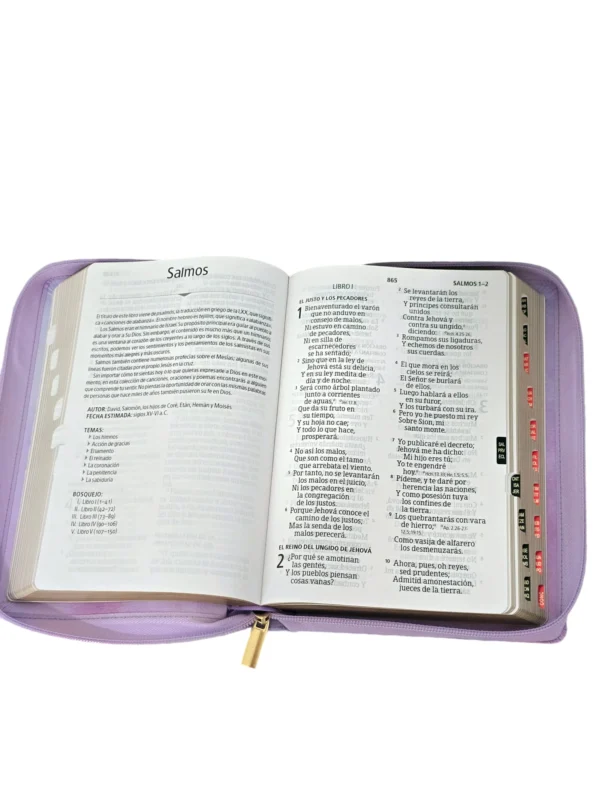 Salmos
El título de este libro viene de psalmoi, la traducción en griego de la LXX, que signifi-
ca «canciones de alabanza».
alabar y orar a Su Dios. Sin embargo, el contenido es mucho más que un himnario:
es una ventana al corazón de los creyentes a lo largo de los siglos. A través de sus
escritos, podemos ver los sentimientos y los pensamientos de los salmistas en sus
momentos más alegres y más oscuros.
Salmos también contiene numerosas profecías sobre el Mesías; algunas de sus
líneas fueron citadas por el propio Jesús en la cruz.
mento, en esta colección de canciones, oraciones y poemas encontrarás a alguien
de personas que hace miles de años también pusieron su fe en Dios.
AUTOR: David, Salomón, los hijos de Coré, Etán, Hemán y Moisés.
FECHA ESTIMADA: siglos XV-VI a.C.
TEMAS:
Los himnos
Acción de gracias
El reinado
La coronación
La penitencia
La sabiduría
BOSQUEJO:
I. Libro I (1–41)
II. Libro II (42–72)
III. Libro III (73–89)
IV. Libro IV (90–106)
V. Libro V (107–150)
LIBRO I
EL JUSTO Y LOS PECADORES
1 Bienaventurado el varón
que no anduvo en
consejo de malos,
Ni estuvo en camino
de pecadores,
Ni en silla de
escarnecedores
se ha sentado;
2 Sino que en la ley de
Jehová está su delicia,
Y en su ley medita de
día y de noche.
3 Será como árbol plantado
junto a corrientes
de aguas,
Que da su fruto en
su tiempo,
Y su hoja no cae;
Y todo lo que hace,
prosperará.
4 No así los malos,
Que son como el tamo
que arrebata el viento.
5 Por tanto, no se levantarán
los malos en el juicio,
Ni los pecadores en
la congregación
de los justos.
6 Porque Jehová conoce el
camino de los justos;
Mas la senda de los
malos perecerá.
EL REINO DEL UNGIDO DE JEHOVÁ
2 ¿Por qué se amotinan
las gentes,
Y los pueblos piensan
cosas vanas?
865 SALMOS 1–2
2 Se levantarán los
reyes de la tierra,
Y príncipes consultarán
unidos
Contra Jehová y
contra su ungido,
diciendo:
3 Rompamos sus ligaduras,
Y echemos de nosotros
sus cuerdas.
4 El que mora en los
cielos se reirá;
El Señor se burlará
de ellos.
5 Luego hablará a ellos
en su furor,
Y los turbará con su ira.
6 Pero yo he puesto mi rey
Sobre Sion, mi
santo monte.
7 Yo publicaré el decreto;
Jehová me ha dicho:
Mi hijo eres tú;
Yo te engendré
hoy.
8 Pídeme, y te daré por
herencia las naciones,
Y como posesión tuya
los confines de
la tierra.
9 Los quebrantarás con vara
de hierro;
Como vasija de alfarero
los desmenuzarás.
10 Ahora, pues, oh reyes,
sed prudentes;
Admitid amonestación,
jueces de la tierra.
SAL
PRV
ECL
CNT
ISA
JER
CONC